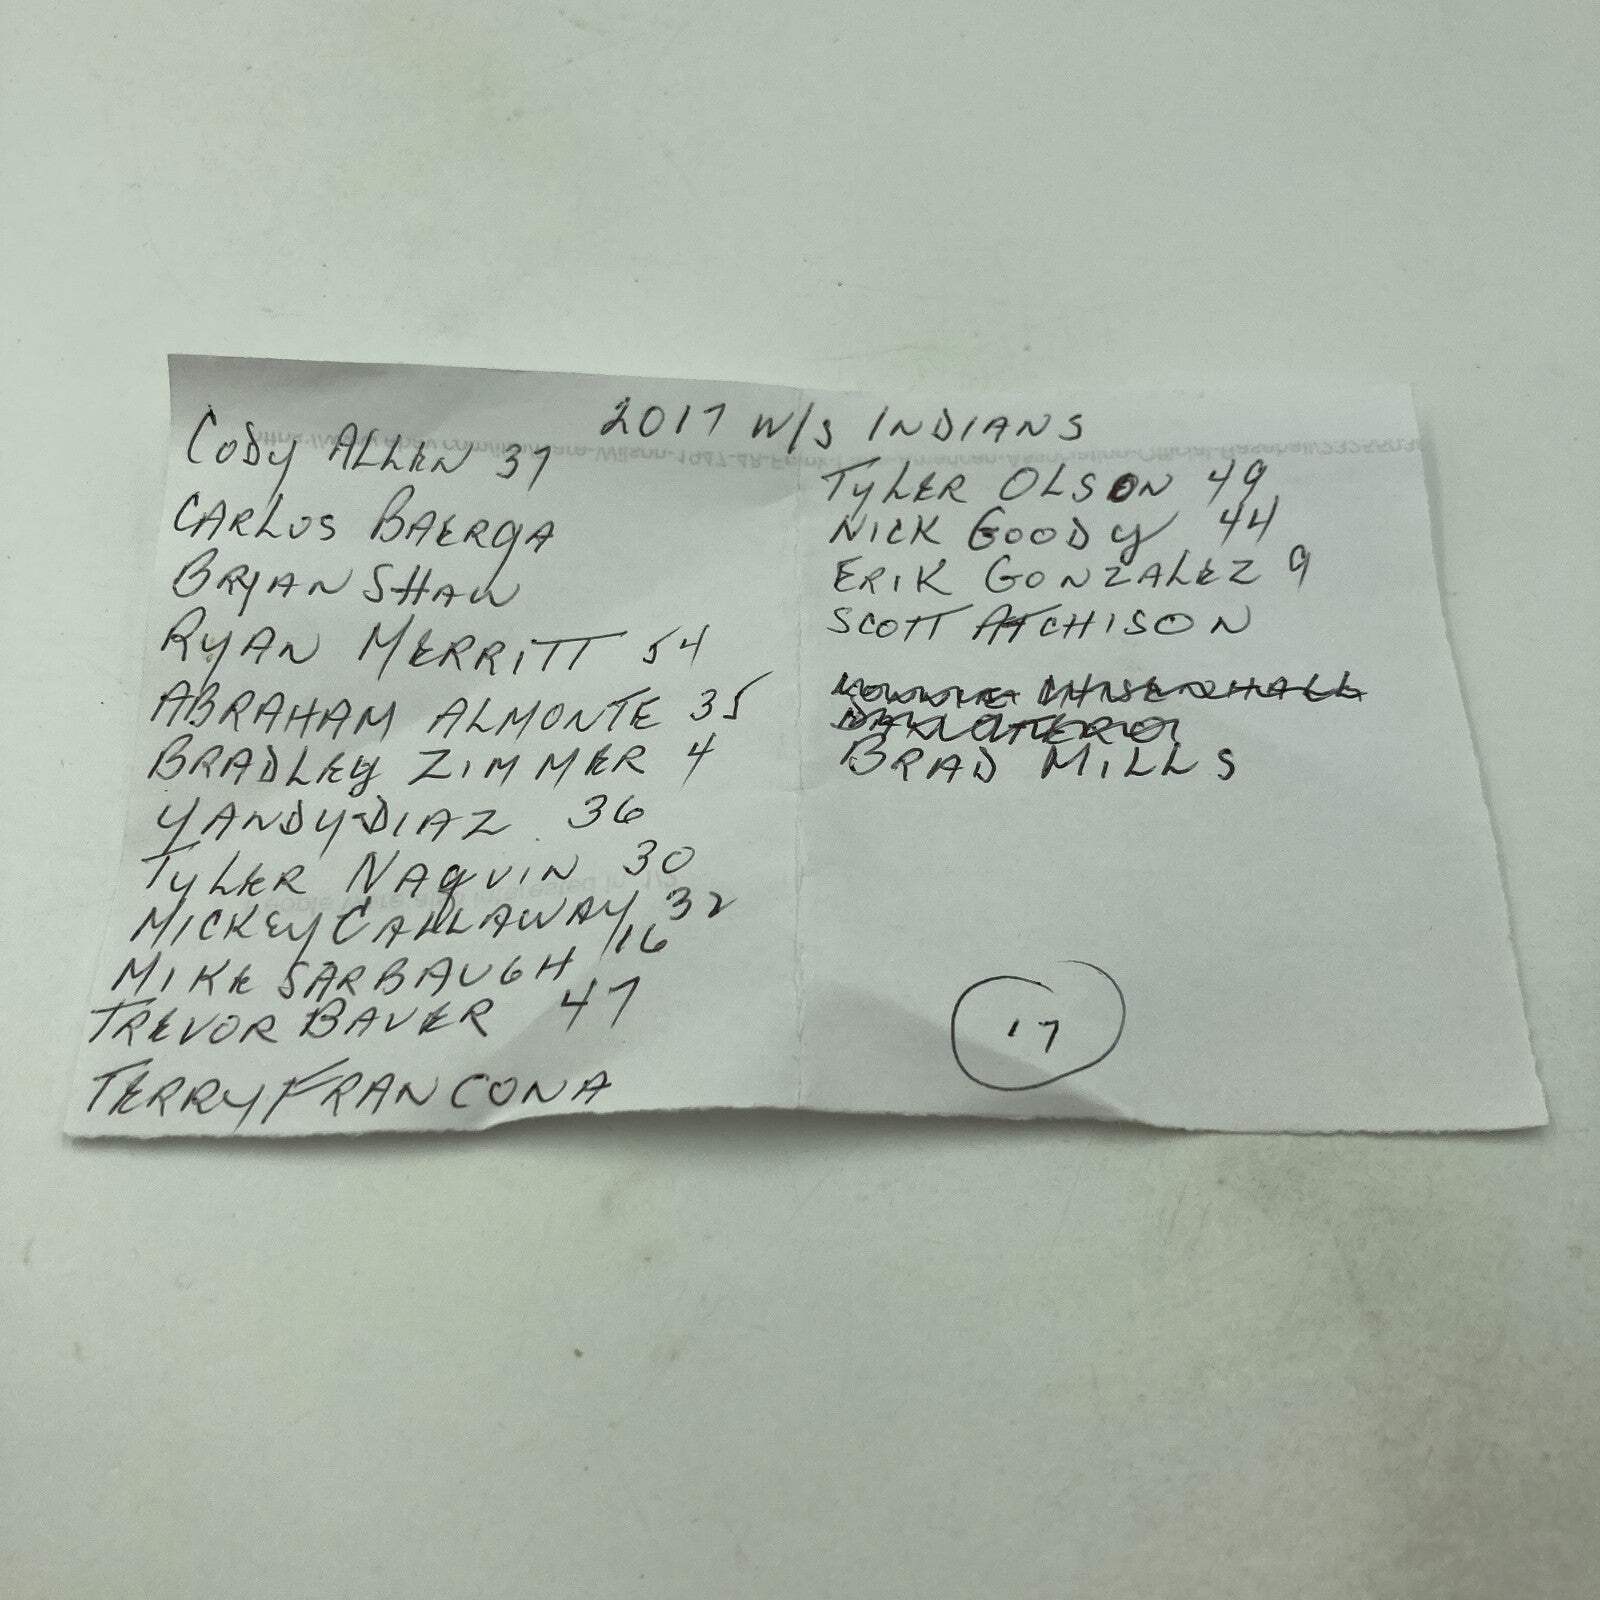 2017 W/S INDIANS
CODY ALLEN 37
CARLOS BAERGA
BRYAN SHAW
RYAN MERRITT 54
ABRAHAM ALMONTE 35
BRADLEY ZIMMER 4
YANDY DIAZ 36
TYLER NAQUIN 30
MICKEY CALLAWAY 32
MIKE SARBAUGH 16
TREVOR BAUER 47
TERRY FRANCONA
TYLER OLSON 49
NICK GOODY 44
ERIK GONZALEZ 9
SCOTT ATCHISON
LONNIE CHISENHALL
DAN OTERO
BRAD MILLS
17